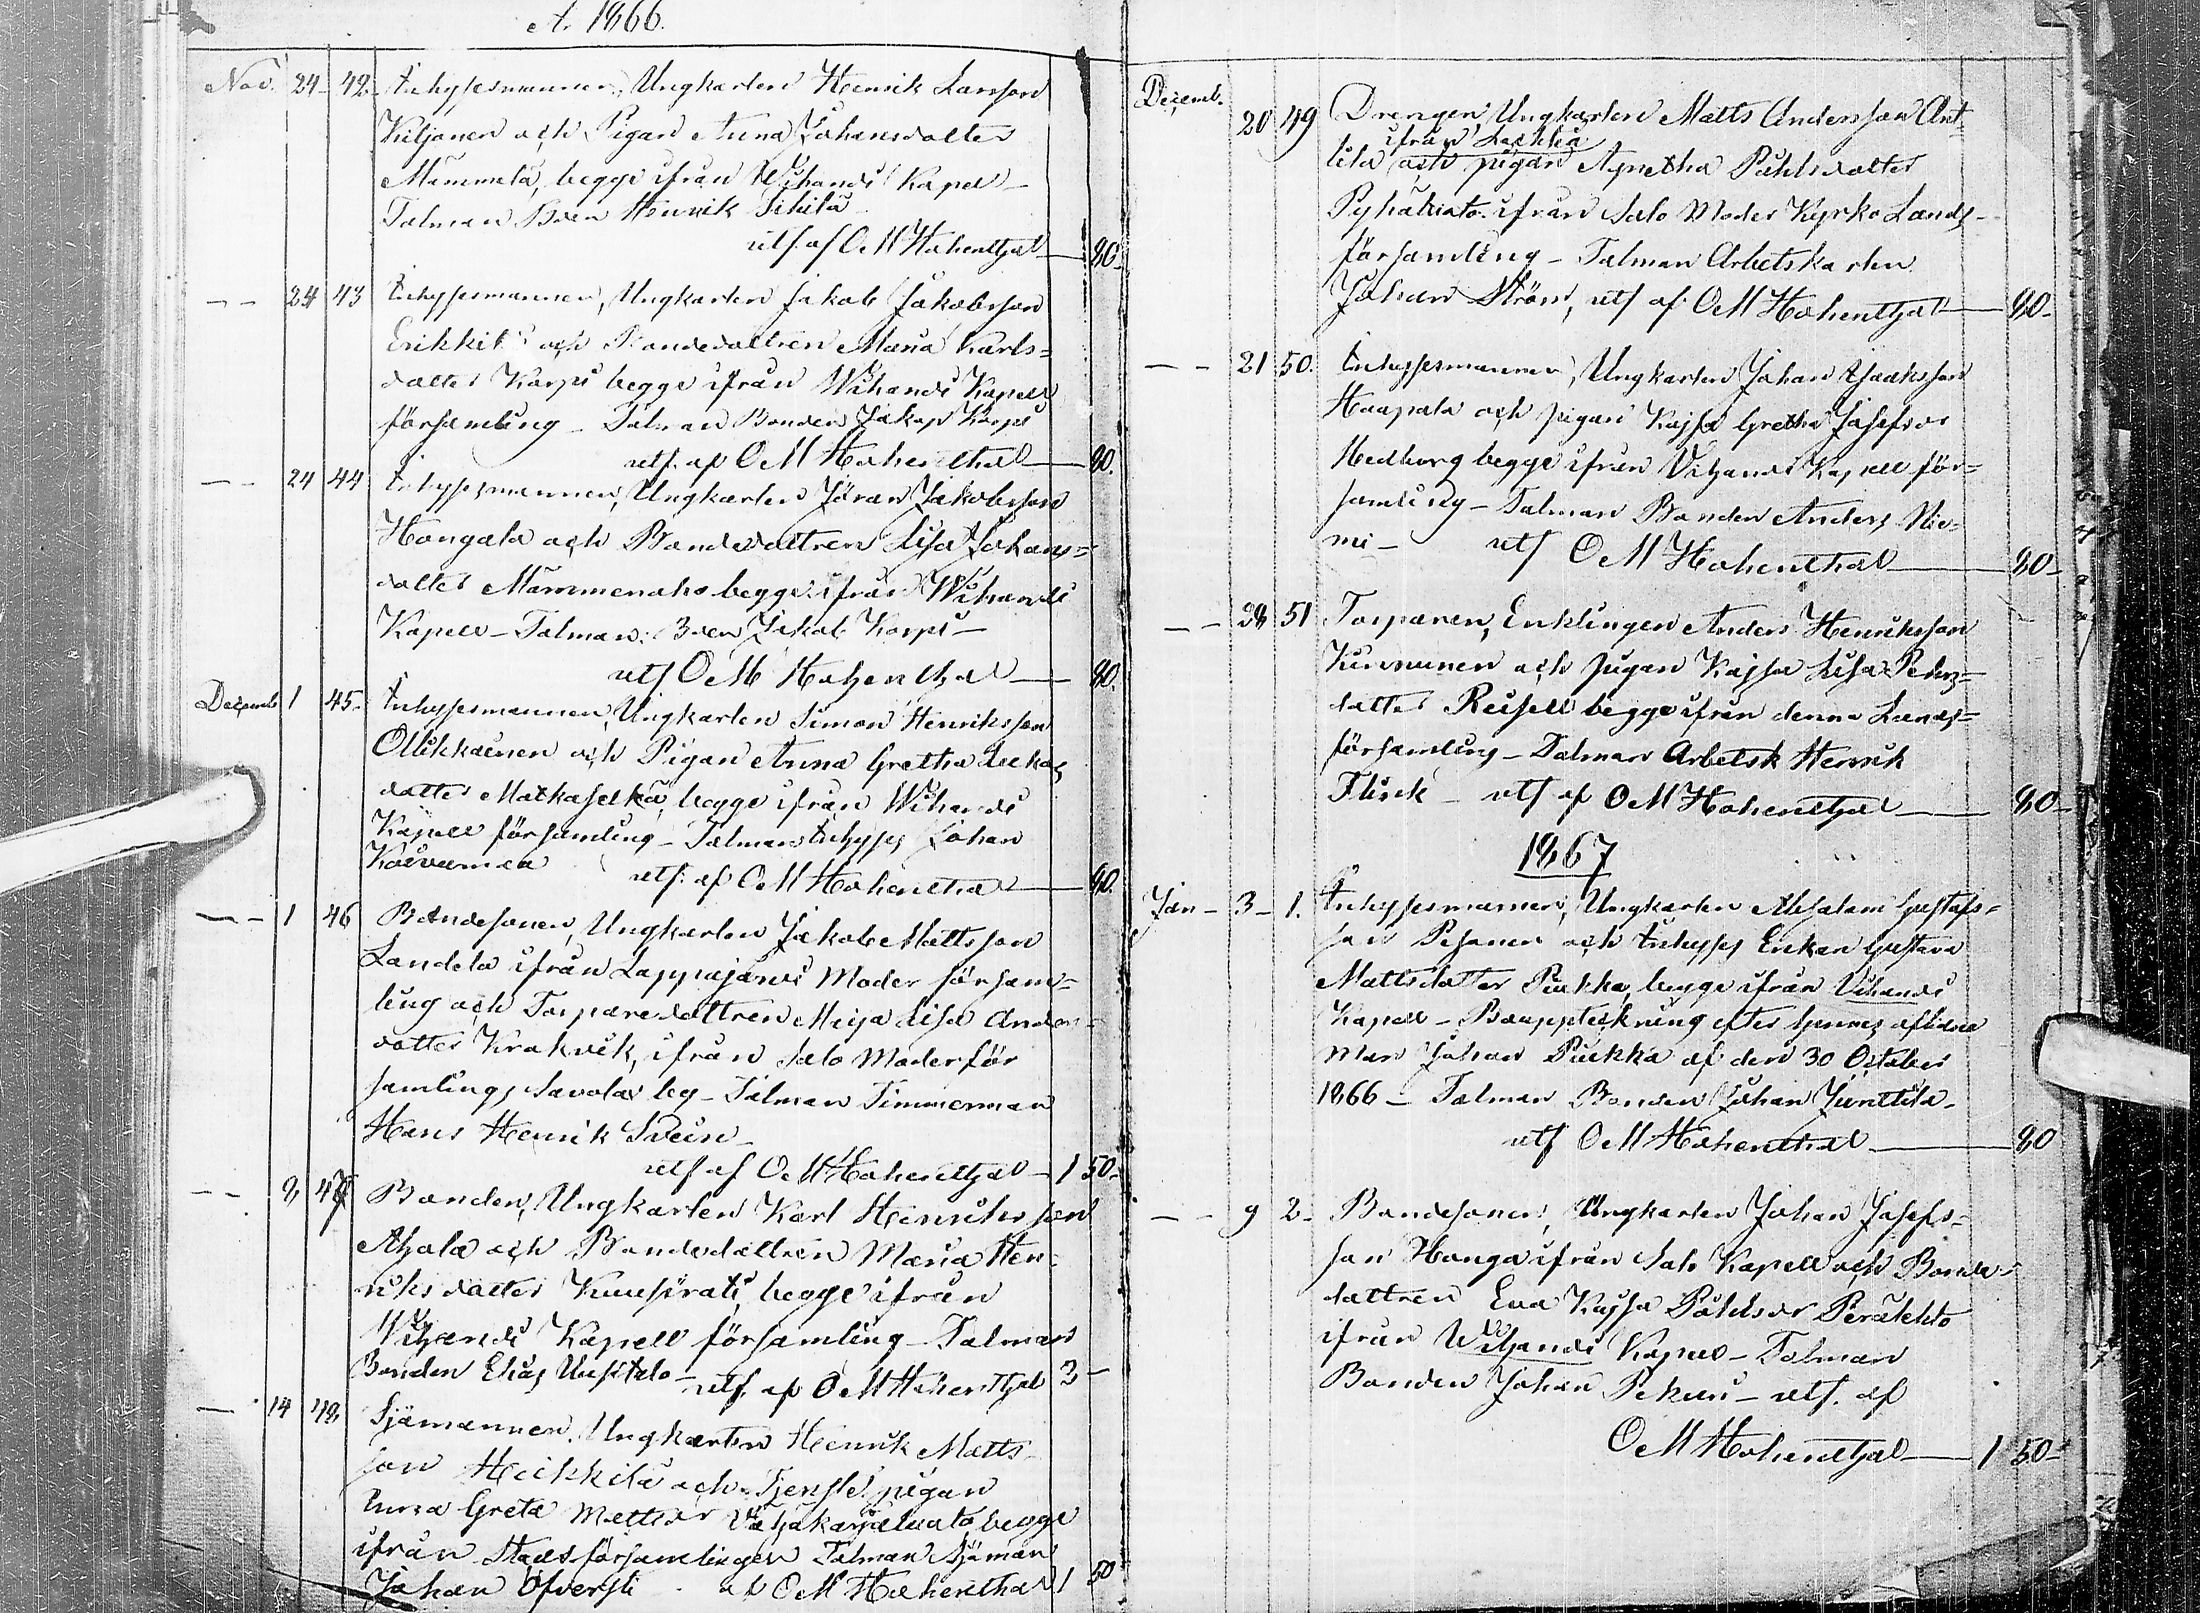 A. 1866.
Nov. 24 42 Inhysesmannen, Ungkarlen Henrik Larsson
Kiljonen och Pigan Anna Johansdotter
Mämmelä, begge ifrån Wihandi Kapell
Talman Bden Henrik Sihilä
utf af O M Hohenthal 80.
24 43 Inhysesmannen, Ungkarlen Jakob Jakobsson
Erikkilä och Bondedottren Maria Karls=
dotter Korpi begge ifrån Wihandi Kapell
församling – Talman Bonden Jakop Korpi
utf. af O M Hohenthal 80.
24 44 Inhysesmannen, Ungkarlen Jöran Jakobsson
Hongala och Bondedottren Lisa Johans=
dotter Mämmenaho begge ifrån Wihandi
Kapell – Talman: Bden Jakob Korpi –
utf O M Hohenthal 80.
Decemb 1 45. Inhysesmannen, Ungkarlen Simon Henriksson
Ollikkainen och Pigan Anna Gretha Lukas
dotter Matkaselkä, begge ifrån Wihandi
Kapell församling – Talman Inhyses Johan
Koivumaa utf. af O M Hohenthal 80.
1 46 Bondesonen, Ungkarlen Jakob Mattsson
Landela ifrån Lappajärvi Moder försam=
ling och Torparedottren Maja Lisa Anders=
dotter Krakvik, ifrån Salo Moderför
samling, Savolax by – Talman Timmerman
Hans Henrik Svein –
utf af O M Hohenthal 1 50.
8 47 Bonden, Ungkarlen Karl Henriksson
Ahola och Bondedottren Maria Hen=
riksdotter Kuusirati, begge ifrån
Wihandi Kapell församling – Talman
Bonden Elias Uusitalo – utf. af O M Hohenthal 2 –
14 48 Sjömannen, Ungkarlen Henrik Matts-
son Heikkilä och Tjenstepigan
Greta Mattsdr begge
ifrån Stadsförsamlingen Talman Sjöman
Johan Öfversti af O M Hohenthal 1 50
Decemb. 20 49 Drengen, Ungkarlen Matts Andersson Ant=
ifrån
tila och pigan Agnetha Påhlsdotter
Pyhäluoto ifrån Salo Moder Kyrko Lands=
församling – Talman Arbetskarlen
Johan Ström, utf af O M Hohenthal 80 –
21 50. Inhysesmannen, Ungkarlen Johan Isaksson
Haapala och pigan Kajsa Gretha Josefsdr
Hedborg begge ifrån Vihandi Kapell för=
samling – Talman Bonden Anders Nie=
mi – utf O M Hohenthal 80 –
28 51 Torparen, Enklingen Anders Henriksson
Kinnunen och pigan Kajsa Lisa Peders=
dotter Reisell begge ifrån denna Lands=
församling – Talman Arbetsk Henrik
Flink – utf af O M Hohenthal 80 –
1867
Jan – 3 – 1. Inhysesmannen, Ungkarlen Absalom Gustafs=
son Pesonen och Inhyses Enkan Gustava
Mattsdotter Piukka, begge ifrån Vihandi
Kapell – Bouppteckning efter hennes aflidne
man Johan Piukka af den 30 October
1866 – Talman Bonden Johan Junttila –
utf O M Hohenthal 80
9 2 – Bondesonen, Ungkarlen Johan Josefs=
son Honga ifrån Salo Kapell och Bonde=
dottren Eva Kajsa Påhlsdr Peräkkto
ifrån Wihandi Kapell – Talman
Bonden Johan Pekuri – utf. af
O M Hohenthal 1 50 –